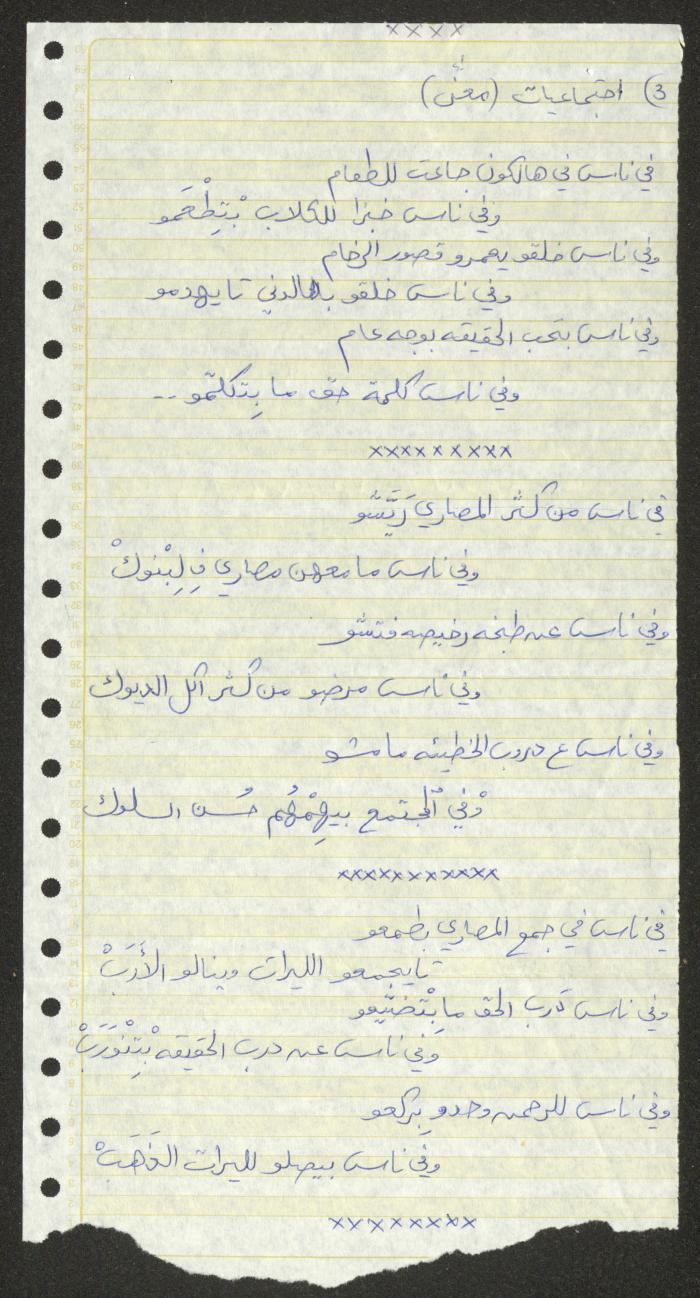 ××××
3) اجتماعيات (معنّى)
في ناس في هالكون جاعت للطعام
وفي ناس خبزا للكلاب بْتِطْعَمو
وفي ناس خلقو يعمرو قصور الرخام
وفي ناس خلقو بهالدني تا يهدمو
وفي ناس بتحب الحقيقه بوجه عام
وفي ناس كلمة حق ما بِتكلمّو ..
×××××××××
في ناس من كثر المصاري رَيّشو
وفي ناس ما معهن مصاري فِ لِبْنوكْ
وفي ناس عن طبخه رخيصه فتشو
وفي ناس مرضو من كثر اكل الديوك
وفي ناس ع دروب الخطيئه ما مشو
وْفي اْلمجتمع بيهِمْهُم حُسن السلوك
×××××××××××
في ناس في جمع المصاري بطمعو
تا يجمعو الليرات وينالو الأَرَبْ
وفي ناس دَرب الحق ما بِتْضَيّعو
وفي ناس عن درب الحقيقه بْتِنْوَرَبْ
وفي ناس للرحمن وحدو بِركعو
وفي ناس بيصلو لليرات الذَهَبْ
××××××××